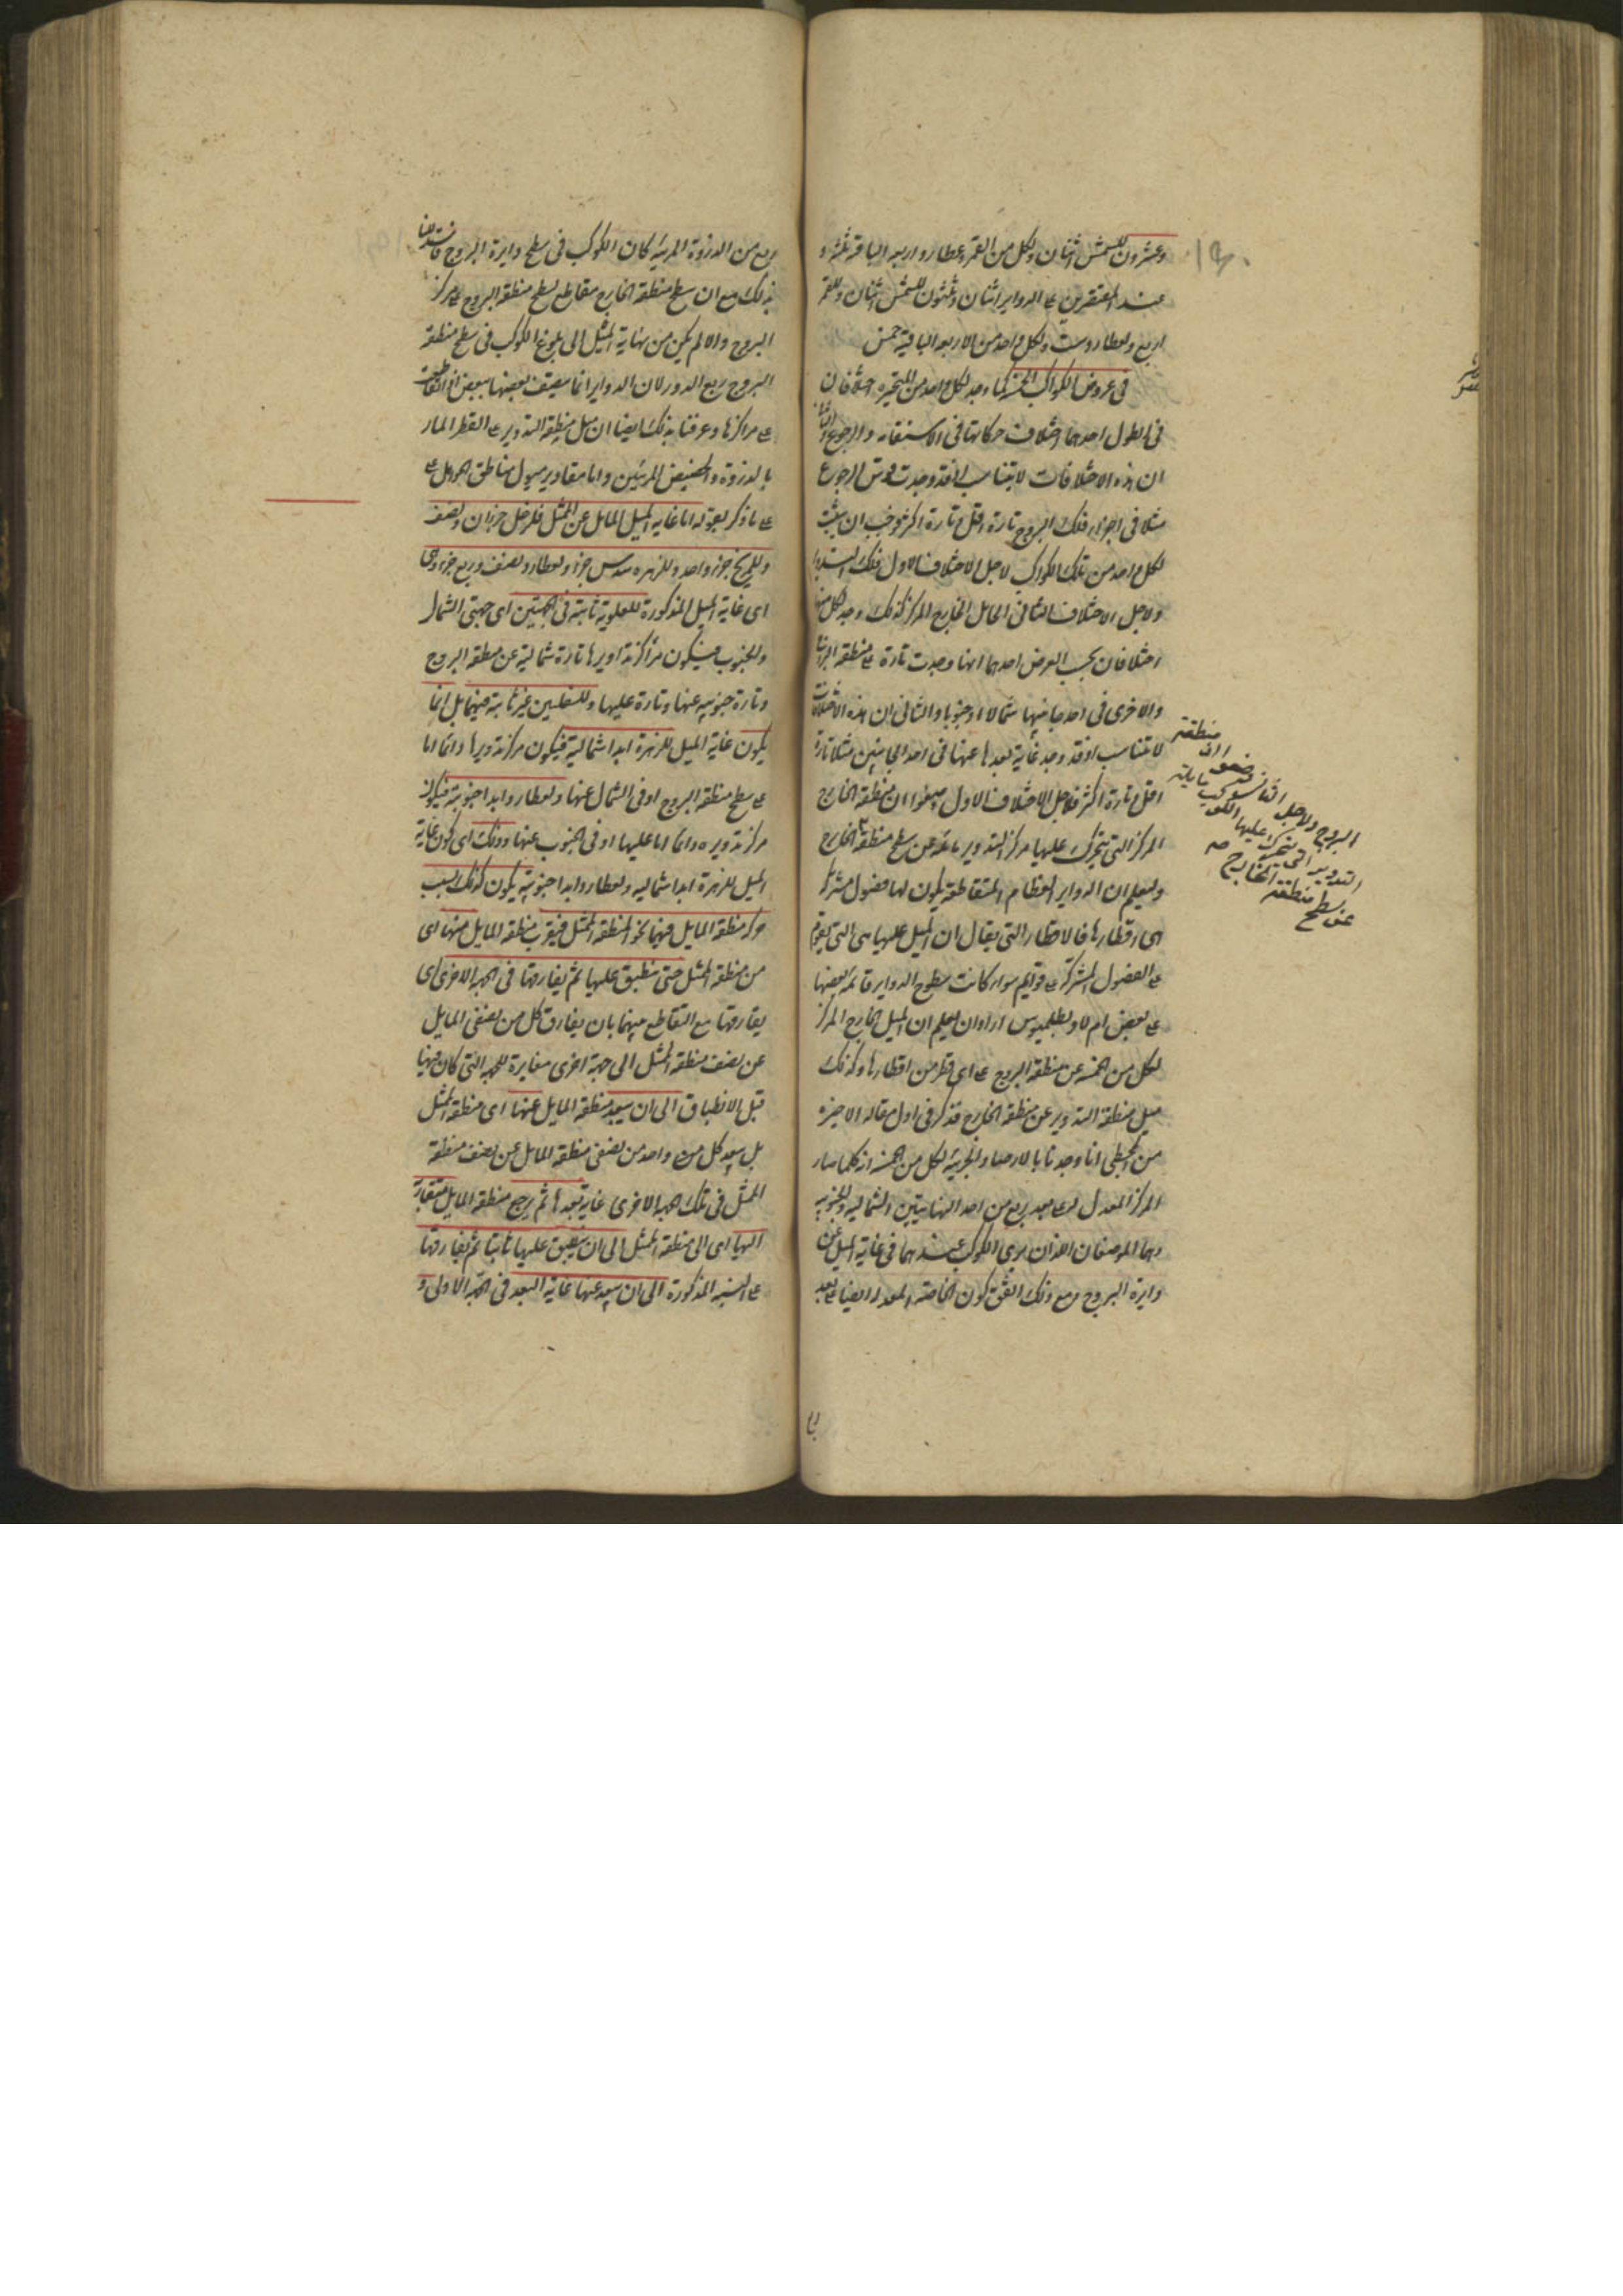 وعشرون للشمس اثنان ولكل من القمر وعطارد اربعه الباقية ثلثة و
عند المقتصرين على الدواير اثنان وثلثون للشمس اثنان وللقمر
اربع ولعطارد ست ولكل واحد من الاربعه الباقية خمس
فى عروض الكواكب الخمسة كما وجد لكل واحد من المتحيره اختلافان
فى الطول احدهما اختلاف حركاتها فى الاستقامه والرجوع والثانى
ان هذه الاختلافات لا تتناسب اذ قد وجدت قوس الرجوع
مثلا فى اجزاء فلك البروج تارة اقل وتارة اكثر وجب ان يثبت
لكل واحد من تلك الكواكب لاجل الاختلاف الاول فلك التدوير
ولاجل الاختلاف الثانى الحامل الخارج المركز كذلك وجد لكل منها
اختلافان بحسب العرض احدهما انها وجدت تارة على منطقه البروج
والاخرى فى احد جانبيها شمالا او جنوبا والثانى ان هذه الاختلافات
لا تتناسب اذ قد وجد غاية بعدها عنها فى احد الجانبين مثلا تارة
اقل وتارة اكثر فلاجل الاختلاف الاول وضعوا ان منطقة الخارج
المركز التى يتحرك عليها مركز التدوير مايلة عن سطح منطقة الخارج
وليعلم ان الدواير العظام المتقاطعة يكون لها فصول مشتركة
هى اقطارها فالاقطار التى يقال ان الميل عليها هى التى تقوم
على الفصول المشتركة على قوايم سواء كانت سطوح الدواير قائمة بعضها
على بعض ام لا وبطلميوس اراد ان يعلم ان الميل الخارج المركز
لكل من الخمسه عن منطقة البروج على اى قطر من اقطارها وكذلك
ميل منطقة التدوير عن منطقة الخارج فذكر فى اول مقاله الاخيره
من المجسطى انا وجدنا بالارصاد الجزئية لكل من الخمسه انه كلما صار
المركز المعدل على بعد ربع من احد النهايتين الشماليه والجنوبيه
وهما الموضعان اللذان يرى الكوكب عندهما فى غاية الميل عن
دايرة البروج ومع ذلك اتفق كون الخاصة المعدله ايضا على بعد
البروج ولاجل الثانى وضعوا ان منطقة
التدوير التى يتحرك عليها الكوكب مايلة
عن سطح منطقة الخارج صه
ربع من الذروة المرئية كان الكوكب فى سطح دايرة البروج فاستدللنا
بذلك مع ان سطح منطقة الخارج مقاطع لسطح منطقة البروج على مركز
البروج والا لم يكن من نهاية الميل الى بلوغ الكوكب فى سطح منطقة
البروج ربع الدور لان الدواير انما ينصف بعضها ببعض اذا تقاطعت
على مراكزها وعرفنا بذلك ايضا ان ميل منطقة التدوير على القطر المار
بالذروة والحضيض المرئيين واما مقادير ميول مناطق الحوامل على
على ما ذكر بقوله اما غاية الميل المايل عن الممثل فلزحل جزءان ونصف
وللمريخ جزء واحد وللزهره سدس جزء ولعطارد نصف وربع جزء وهى
اى غاية الميل المذكورة للعلوية ثابتة فى الجهتين اى جهتى الشمال
والجنوب فيكون مراكز تداويرها تارة شمالية عن منطقة البروج
وتارة جنوبيه عنها وتارة عليها وللسفليين غير ثابته فيهما بل انما
يكون غاية الميل للزهرة ابدا شمالية فيكون مركز تدويرها دائما اما
على سطح منطقة البروج او فى الشمال عنها ولعطارد ابدا جنوبية فيكون
مركز تدويره دائما اما عليها او فى الجنوب عنها وذلك اى كون غاية
الميل للزهرة ابدا شماليه ولعطارد ابدا جنوبية يكون كذلك بسبب
حركة منطقة المايل فيهما نحو المنطقة الممثل فيقرب منطقة المايل منها اى
من منطقة الممثل حتى ينطبق عليها ثم يفارقها فى الجهه الاخرى اى
يفارقها مع التقاطع بينهما بان يفارق كل من نصفى المايل
عن نصف منطقة الممثل الى جهة اخرى مغايرة للجهه التى كان فيها
قبل الانطباق الى ان يبعد منطقة المايل عنها اى منطقة الممثل
بل يبعد كل من واحد من نصفى منطقة المايل عن نصف منطقة
الممثل فى تلك الجهه الاخرى غاية بعدها ثم يرجع منطقة المايل متقاربة
اليها اى الى منطقة الممثل الى ان ينطبق عليها ثانيا ثم يفارقها
على النسبه المذكورة الى ان يبعد عنها غاية البعد فى الجهة الاولى و